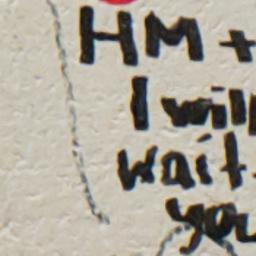 HM +
I will
wait
you